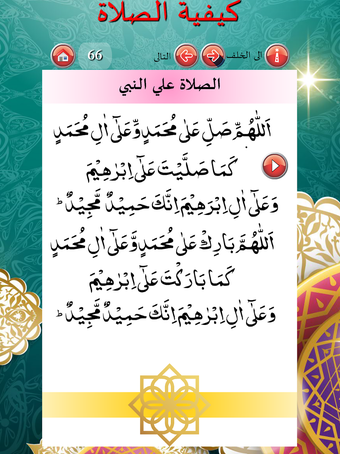 كيفية الصلاة
الى الخلف
التالى
66
الصلاة علي النبي
اَللّٰهُمَّ صَلِّ عَلٰی مُحَمَّدٍ وَّعَلٰٓی اٰلِ مُحَمَّدٍ
كَمَا صَلَّيْتَ عَلٰٓی اِبْرٰهِيْمَ
وَعَلٰٓی اٰلِ اِبْرٰهِيْمَ اِنَّكَ حَمِيْدٌ مَّجِيْدٌ ؕ
اَللّٰهُمَّ بَارِكْ عَلٰی مُحَمَّدٍ وَّعَلٰٓی اٰلِ مُحَمَّدٍ
كَمَا بَارَكْتَ عَلٰٓی اِبْرٰهِيْمَ
وَعَلٰٓی اٰلِ اِبْرٰهِيْمَ اِنَّكَ حَمِيْدٌ مَّجِيْدٌ ؕ